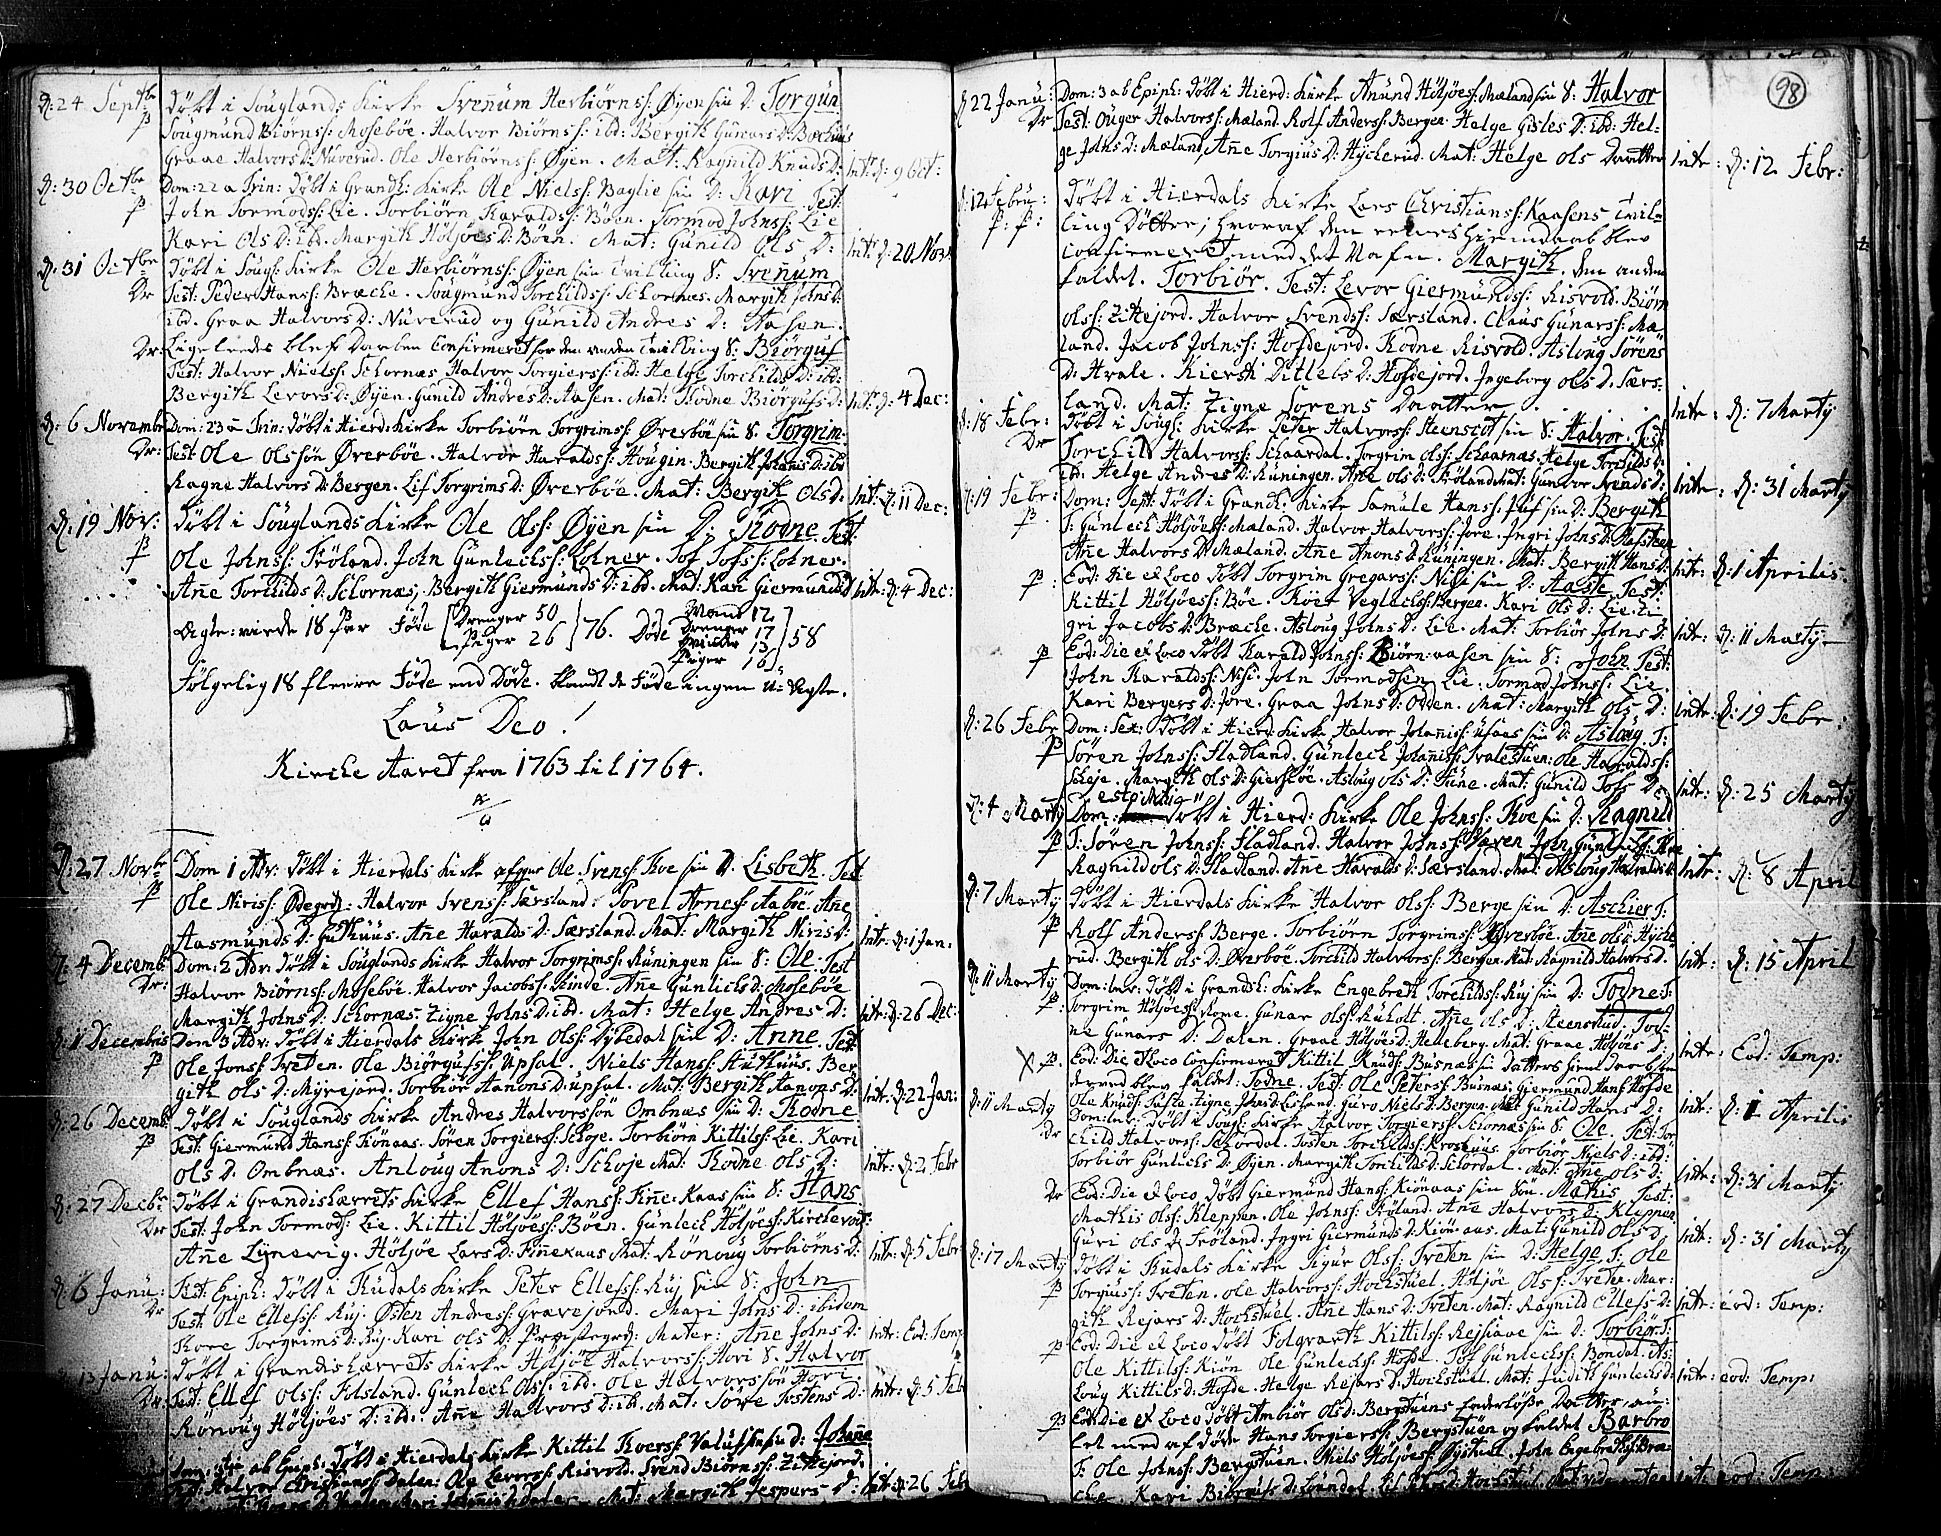 D: 24 Septbr
p
Døbt i Souglands Kirke Svenum Herbiørnss: Øyen sin D: Torgun
Sougmund Biørnss: Mosebøe. Halvor Biørnss: ibd: Bergith Gunars D:
Graae Halvors D: Nuverud. Ole Herbiørnss: Øyen. Mat: Ragnild Knuds D: Intr: D: 9 Oct:
D: 30 Octbr
p
Dom: 22 a Trin: Døbt i Grandh: Kirke Ole Nielss: Baglie sin D: Kari Test:
John Tormodss: Lie. Torbiørn Haraldss: Bøen. Tormod Johnss: Lie
Kari Ols D: ibd. Margith Høljøes D: Bøen. Mat: Gunild Ols D: Intr: D: 20 Nov:
D: 31 Octbr
Dr
Døbt i Sougl: Kirke Ole Herbiørnss: Øyen sin Tvilling S: Svenum
Test: Peder Hanss: Bræche. Sougmund Torchildss: Schornæs. Margith Johns D:
ibd. Graa Halvors D: Nuverud og Gunild Andres D: Aasen.
Dr: Ligeledes blef Daaben Confirmeret for den anden Tvilling S: Biørguf
Test: Halvor Nielss: Schornæs Halvor Torgierss: ibd: Helge Torchilds D: ibd:
Bergith Levors D: Øyen. Gunild Andres D: Aasen. Mat: Rodne Biørgufs D: Intr: D: 4 Dec:
D: 6 Novembr
Dr:
Dom: 23 a Trin: Døbt i Hierd: Kirke Torbiørn Torgrimss: Øverbøe sin S: Torgrim.
Test: Ole Olssøn Øverbøe. Halvor Haraldss: Hougin. Bergith Johanis D: ibd
Ragne Halvors D: Bergen. Lif Torgrims D: Øverbøe. Mat: Bergith Ols D: Intr: D: 11 Dec:
D: 19 Nov:
p
Døbt i Souglands Kirke Ole Olss: Øyen sin D: Rodne. Test:
Ole Johnss: Frøland. John Gunlechss: Lofner. Tof Tofss: Lofner.
Anne Torchilds D: Schornæs, Bergith Giermunds D: ibd. Mat: Kari Giermunds D: Intr: D: 4 Dec:
Ægte: viede 18 Par Føde Drenger 50 Piger 26 76. Døde Mænd 12 Drenger 17 Qvinder 13 Piger 16 58
Følgelig 18 fleere Føde end Døde. blandt de Føde ingen U: Ægte.
Laus Deo!
Kirche Aaret fra 1763 til 1764.
D: 27 Novbr
p
Dom 1 Adv: Døbt i Hierdals Kirke Ole Svenss: Roe sin D: Lisbeth. Test
Ole Niriss: Ødegrd: Halvor Svenss: Særsland. Povel Arness: Aabøe. Ane
Aasmunds D: Huthuus. Ane Haralds D: Særsland. Mat: Margith Niris D: Intr: D: 1 Jan:
D: 4 Decemb:
Dr:
Dom: 2 Adv: Døbt i Souglands Kirke Halvor Torgrimss: Runingen sin S: Ole. Test
Halvor Biørnss: Mosebøe. Halvor Jacobss: Kinde. Ane Gunlichs D: Mosebøe
Margith Johns D: Schornæs. Zigne Johns D: ibd. Mat: Helge Andres D: Intr: D: 26 Dec:
D: 11 Decembris
p
Dom 3 Adv: Døbt i Hierdals Kirke John Olss: Dybedal sin D: Anne. Test
Ole Jonss: Treten. Ole Biørgufss: Upsal. Niels Hanss: Huthuus. Ber-
gith Ols D: Myrejord. Torbiør Hanons D: Upsal. Mat: Bergith Hanons D: Intr: D: 22 Jan:
D: 26 Decemb:
p
Døbt i Souglands Kirke Andres Halvorssøn Ombnæs sin D: Rodne
Test: Giermund Hanss: Kiønaas. Søren Torgierss: Schoje. Torbiørn Kittilss: Lie. Kari
Ols D: Ombnæs. Anloug Anons D: Schoje Mat: Rodne Ols D: Intr: D: 2 Febr
D: 27 Decbr
Dr
Døbt i Grandisherrets Kirke Ellef Hanss: Fine-Kaas sin S: Hans
Test: John Tormods: Lie. Kittil Høljøess: Bøen. Gunlech Høljøess: Kirchevold:
Ane Lynevig. Høljøe Lars D: Finekaas Mat: Rønoug Torbiørns D: Intr: D: 5 Febr
D: 6 Janu:
Dr
Fest: Epiph: Døbt i Tudals Kirke Peter Ellefss: Ruj sin S: John
Test: Ole Ellefss: Ruj. Østen Andress: Gravejord. Mari Johns D: ibidem
Tore Torgrims D: Ruj. Kari Ols D: Mater: Ane Johns D: Intr: Eod: Temp
D: 13 Janu:
Dr:
Døbt i Grandisherrets Kirke Høljøe Halvorss: Hovi S: Halvor
Test: Ellef Olss: Folsland. Gunlech Olss: ibd. Ole Halvorssøn Hovi
Rønoug Høljøes D: ibd: Ane Halvors D: ibd. Mat: Tove Tostens D: Intr: D: 5 Feb
Dom: 2 ab Epiph: Døbt i Hierdals Kirke Kittil Roerss: sin D: Johane
Test: Halvor Christianss: Dalen. Ole Levorss: Risvold. Svend Biørnss: Zittejord.
Mat: Margith Jespers D: Intr: D: 26 Feb
98
D: 22 Janu:
Dr
Dom: 3 ab Epiph: Døbt i Hierd: Kirke Anund Høljøess: Mæland sin S: Halvor
Test: Ouger Halvorss: Mæland. Rolf Anderss: Bergen. Helge Gisles D: ibd: Hel-
ge Johns D: Mæland, Ane Torgius D: Hyckerud. Mat: Helge Ols Daatter Intr: D: 12 Febr:
D: 12 Febru:
p: p:
Døbt i Hierdals Kirke Lars Christianss: Kaasens Tvil-
ling Døttre; hvoraf den eenes hiemdaab blev
Confirmeret, med det Nafn. Margith. den anden
kaldet. Torbiør. Test: Levor Giermundss: Risvold. Biørn
Olss: Zittejord. Halvor Svendss: Særsland. Claus Gunarss: Mæ-
land. Jacob Johnss: Hofdejord. Rodne Risvold. Asloug Sørens
D: Hvale. Kiersti Ditlebs D: Hofdejord. Ingeborg Ols D. Særs-
land. Mat: Zigne Sorens Daatter. Intr: D: 7 Marty
D: 18 Febr:
Dr
Døbt i Sougl: Kirke Peter Halvorss: Steenscot sin S: Halvor. Test:
Torchild Halvorss: Schaardal. Torgrim Olss: Schaarnæs. Helge Torchilds D:
ibd. Helge Andres D: Runingen. Ane Ols D: Frøland. Mat: Gundvor Svends D: Intr: D: 31 Marty
D: 19 Febr:
p
Dom: Sept: Døbt i Grandh: Kirke Samule Hanss: Juf sin D: Bergith
T: Gunlech Høljøess: Mæland. Halvor Halvorss: Jore. Ingri Johns D: Hafsteen
Ane Halvors D: Mæland. Ane Anons D: Runingen. Mat: Bergith Hans D: Intr: D: 1 Aprilis.
p: Eod: Die et Loco Døbt Torgrim Gregarss: Nisi sin D: Aaste. Test:
Kittil Høljøess: Bøe. Roer Veglechss: Bergen. Kari Ols D: Lie. In-
gri Jacobs D: Bræche. Asloug Johns D: Lie. Mat: Torbiør Johns D: Intr: D: 11 Marty
p Eod: Die et Loco døbt Harald Johnss: Biørn-aasen sin S: John. Test:
John Haraldss: Nisi. John Tormodsen Lie. Tormod Johnss: Lie.
Kari Bergers D: Jore. Graa Johns D: Odden. Mat: Margith Ols D: Intr: D: 19 Febr:
D: 26 Febr
p
Dom: Sex: Døbt i Hierd: Kirke Halvor Johaniss: Ufaes sin D: Asloug. T:
Søren Johnss: Fladland. Gunlech Johaniss: Svalestuen. Ole Haraldss:
Scheje. Margith Ols D: Giersbøe. Asloug Ols D: Tune. Mat: Gunild Tofs D: Intr: D: 25 Marty
D: 4 Marty
p
Dom: esto Mihi Døbt i Hierd: Kirke Ole Johnss: Roe sin D: Ragnild
T: Søren Johnss: Fladland. Halvor Johnss: Haven John Gunless: Roe
Ragnild Ols D: Fladland. Ane Haralds D: Særsland. Mat: Asloug Haralds D: Intr: D: 8 April
D: 7 Marty
p
Døbt i Hierdals Kirke Halvor Olss: Berge sin D: Aschier T:
Rolf Anderss: Berge. Torbiørn Torgrimss: Øverbøe. Ane Ols D: Hycke-
rud. Bergith Ols D: Øverbøe. Torchild Halvorss: Bergen. Mat. Ragnild Halvors D. Intr: D: 15 April
D: 11 Marty
p:
Dom: Inv: Døbt i Grandh: Kirke Engebreth Torchildss: Ruj sin D: Todne T:
Torgrim Høljøess: Rome. Gunar Olss: Ruholt. Ane Ols D: Steensrud. Tod-
ne Gunars D: Dalen. Graae Høljøes D: Helleberg. Mat: Graae Høljøes D: Intr: Eod: Temp:
X p. Eod: Die et Loco Confirmeret Kittil Knuds: Busnæs sin Datters hiemdaab som
derved blev kaldet: Todne. Test: Ole Peterss: Busnæs. Giermund Hanss: Hofde
Ole Knuds: Zigne Johns D: Lisland. Guro Niels D: Bergen. Mat Gunild Hans D: Intr: D: 1 Aprilis
D: 11 Marty
Dr
Dom: Inv: Døbt i Sougl: Kirke Halvor Torgierss: Schornæs sin S: Ole. Test: Tor-
child Halvorss: Schordal. Tosten Torchildss: Kroshuus. Torbiør Niels D: ibd:
Torbiør Gunlechs D: Øyen. Margith Torchilds D: Schordal. Mat: Ane Ols D: Intr: D: 31 Marty
Dr Eod: Die et Loco Døbt Giermund Hanss: Kiønaas sin Søn. Mathis. Test:
Mathis Olss: Kleppen. Ole Johnss: Frøland. Ane Halvors D: Kleppen
Guri Ols D: Frøland. Ingri Giermunds D: Kiønaas. Mat: Gunild Ols D: Intr: D: 31 Marty
D: 17 Marty
p
Døbt i Tudals Kirke Sigur Olss: Treten sin D: Helge. T: Ole
Torgiuss: Treten. Ole Halvorss: Hochstuel. Høljøe Olss: Treten. Mar-
gith Rejars D: Hochstuel. Ane Hans D: Treten. Mat: Ragnild Ellefs D: Intr: eod: Temp:
p Eod: Die et Loco døbt Folqvarth Kittilss: Rejsaae sin D: Torbiør. T:
Ole Kittilss: Kiøn. Ole Gunlechss: Hofde. Tof Gunlechss: Bondal. As-
loug Kittils D: Hofde. Helge Rejars D: Hochstuel. Mat: Judith Gunlechs D: Intr: eod: Temp:
p Eod: Die et Loco Døbt Ambiør Ols D: Bergstuens faderløse Datter, auf-
let med afdøde Hans Torgierss: Bergstuen og kaldet Barbro
T: Ole Johnss: Bergstuen. Niels Høljøess: Øystuel. John Engebrethss: Bræ-
che. Kari Biørgufs D: Løundal. Intr: eod: Temp: